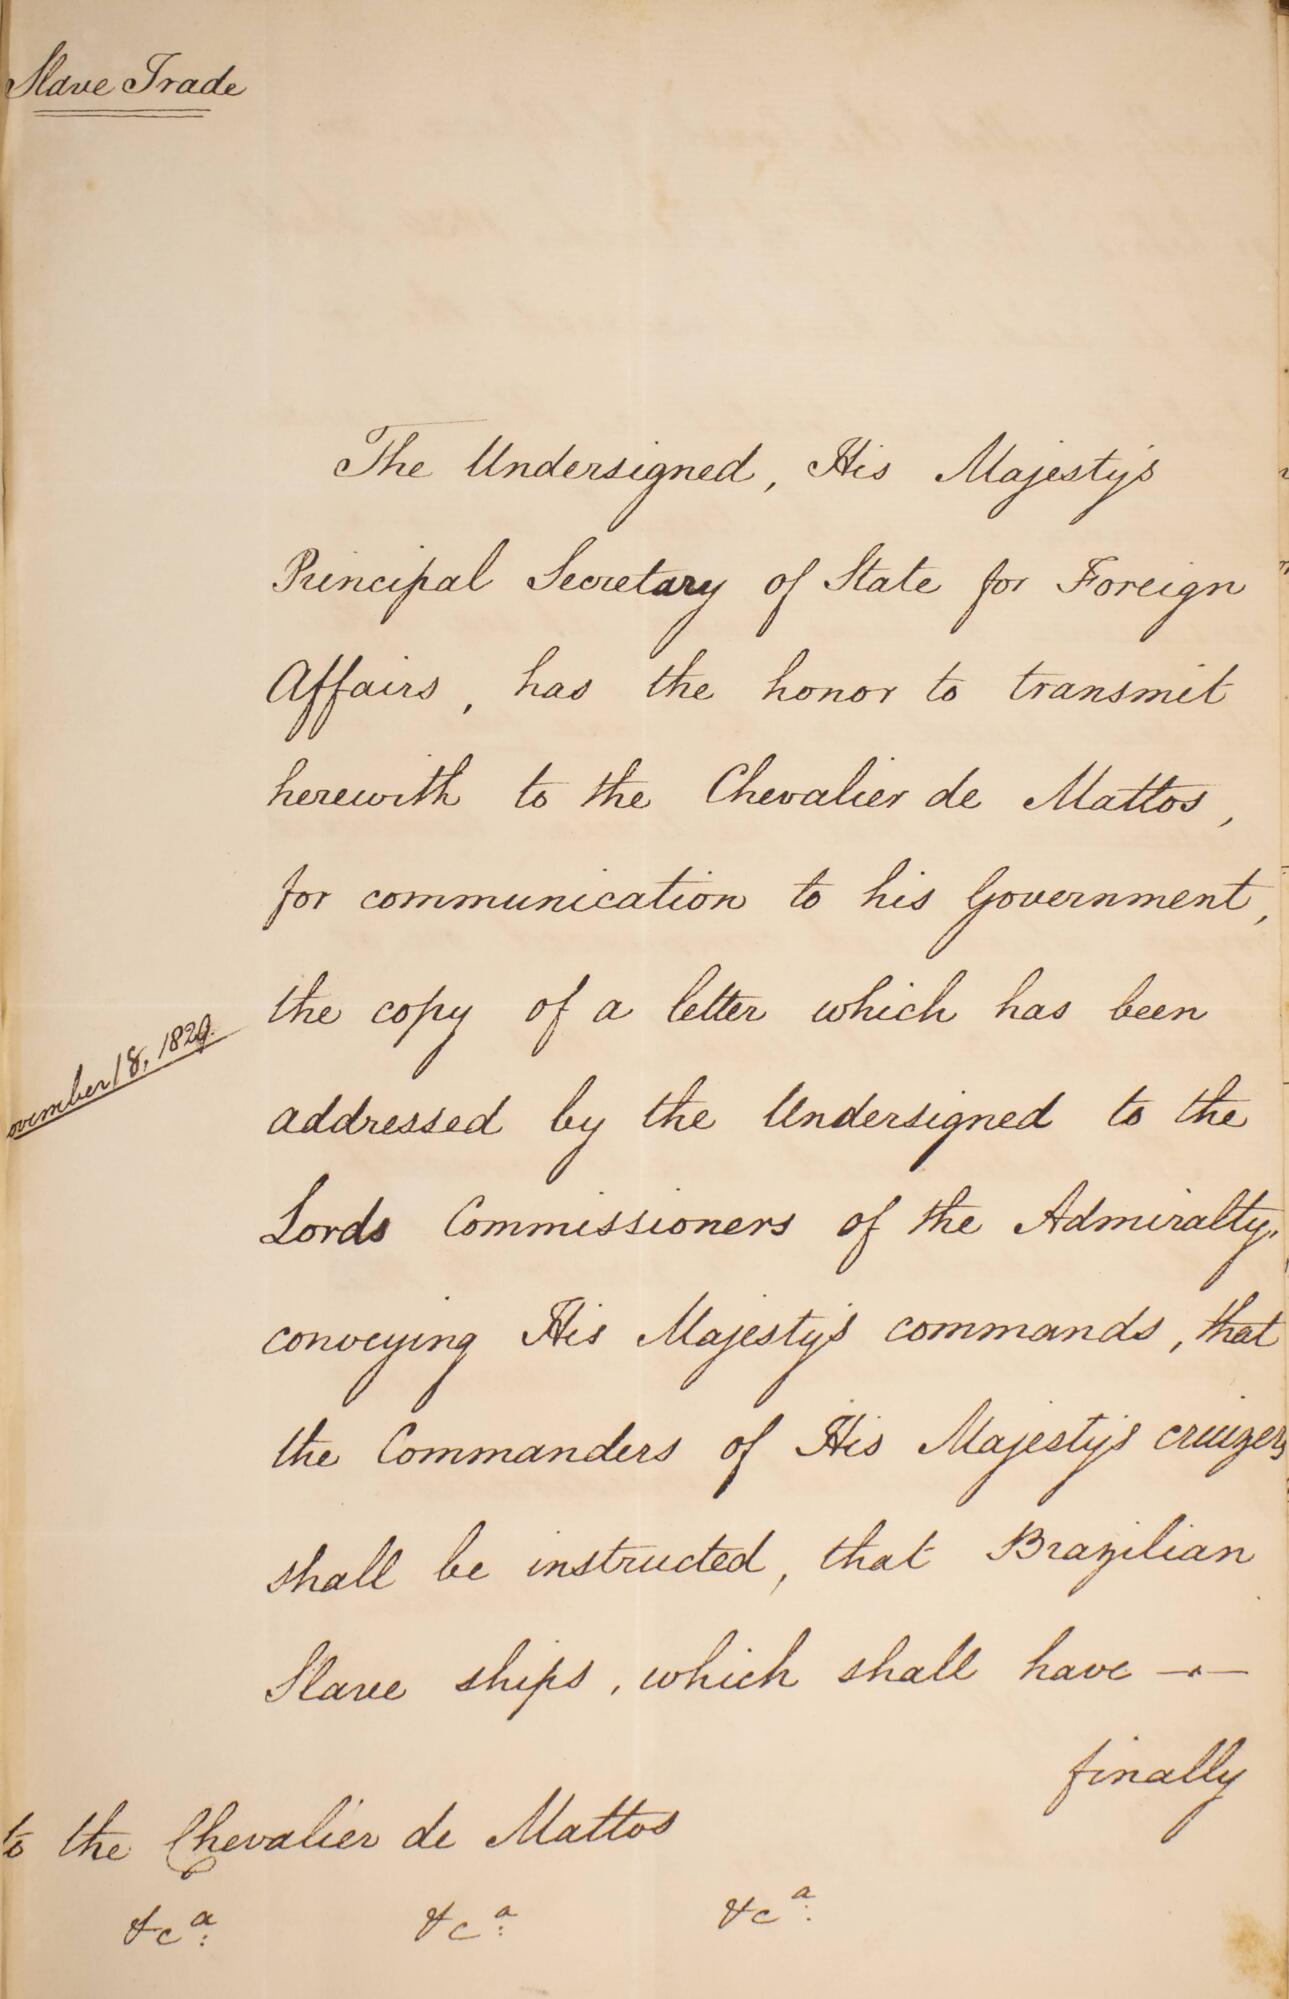 Slave Trade
The Undersigned, His Majesty's
Principal Secretary of State for Foreign
Affairs, has the honor to transmit
herewith to the Chevalier de Mattos,
for communication to his Government,
the copy of a letter which has been
ovember 18, 1829.
addressed by the Undersigned to the
Lords Commissioners of the Admiralty,
conveying His Majesty's commands, that
the Commanders of His Majesty's cruizers
shall be instructed, that Brazilian
Slave ships, which shall have —
finally
to the Chevalier de Mattos
&c.ª &c.ª &c.ª